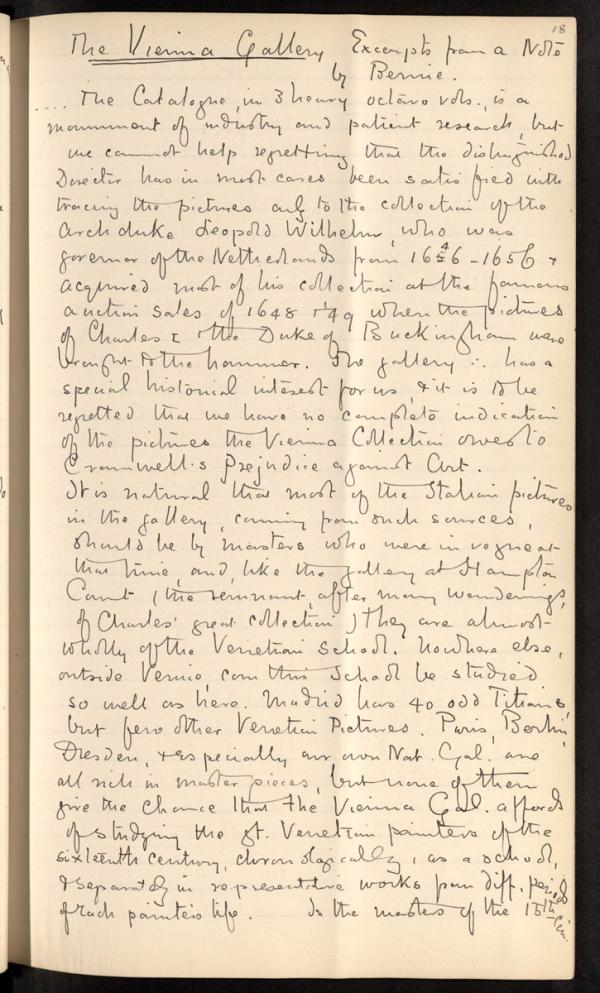 18
The Vienna Gallery Excerpts from a Note
by Bernie.
.... The Catalogue, in 3 heavy octavo vols., is a
monument of industry and patient research, but
we cannot help regretting that the distinguished
Director has in most cases been satisfied with
tracing the pictures only to the collection of the
Archduke Leopold Wilhelm, who was
governor of the Netherlands from 1646-1656 &
acquired most of his collection at the famous
auction sales of 1648 & '49 when the pictures
of Charles I & the Duke of Buckingham were
brought to the hammer. The gallery ∴ has a
special historical interest for us, & it is to be
regretted that we have no complete indication
of the pictures the Vienna Collection owes to
Cromwell's Prejudice against Art.
It is natural that most of the Italian pictures
in the gallery, coming from such sources,
should be by masters who were in vogue at
that time, and, like the gallery at Hampton
Court (the remnant, after many wanderings,
of Charles' great collection) they are almost
wholly of the Venetian School. Nowhere else,
outside Venice, can this School be studied
so well as here. Madrid has 40 odd Titians,
but few other Venetian Pictures. Paris, Berlin,
Dresden, & especially our own Nat. Gal. are
all rich in master pieces, but none of them
give the chance that the Vienna Gal. affords
of studying the gt. Venetian painters of the
sixteenth century, chronologically, as a school,
& separately in representative works from diff. periods
of each painter's life. In the masters of the 15th Cen.